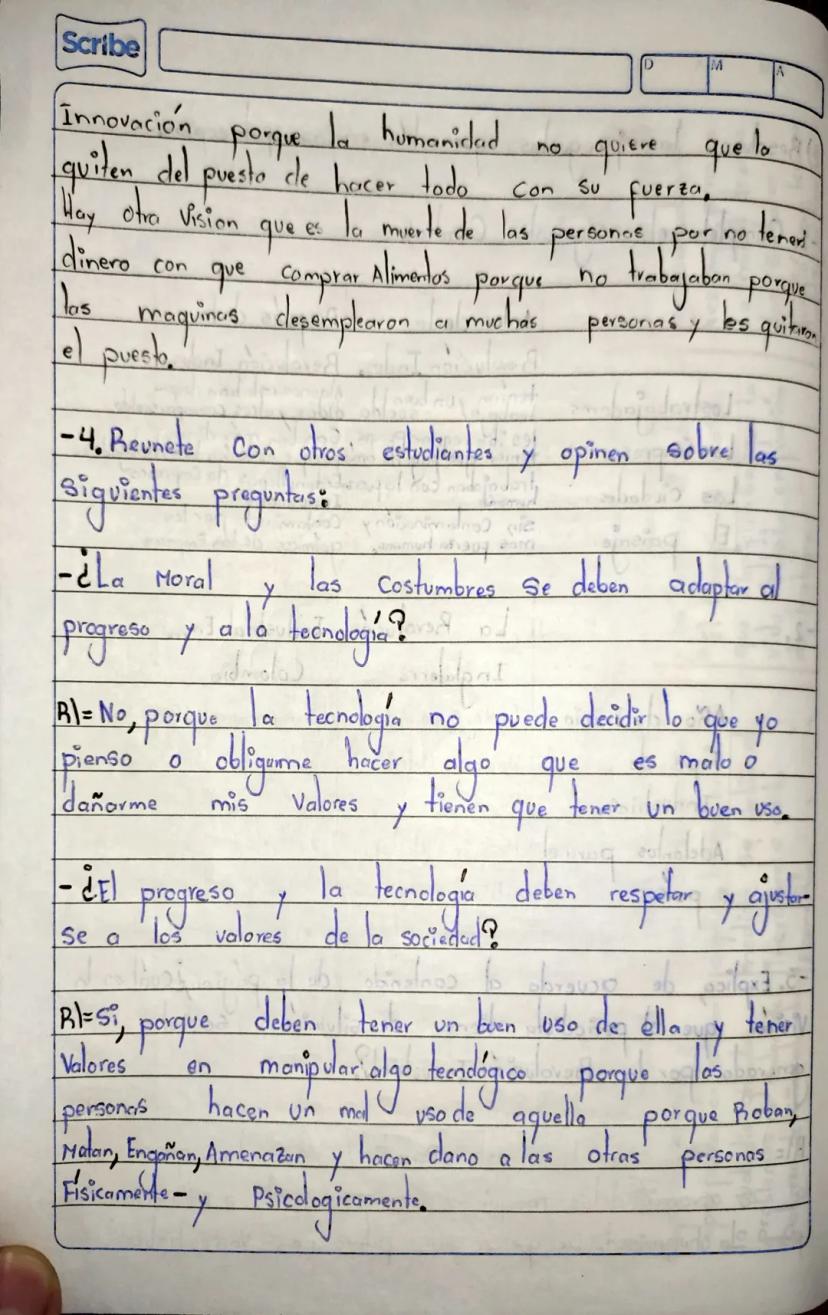 Scribe
D M A
Innovación porque la humanidad no quiere que lo
quiten del puesto de hacer todo con su fuerza.
Hay otra Vision que es la muerte de las personas por no tener
dinero con que comprar Alimentos porque no trabajaban porque
las maquinas desemplearon a muchas personas y les quitaron
el puesto.
-4. Reunete con otros estudiantes y opinen sobre las
siguientes preguntas:
-¿La Moral y las costumbres se deben adaptar al
progreso y a la tecnología?
R|= No, porque la tecnología no puede decidir lo que yo
pienso o obligarme hacer algo que es malo o
dañarme mis valores y tienen que tener un buen uso.
-¿El progreso y la tecnología deben respetar y ajustar-
se a los valores de la sociedad?
R|= Si, porque deben tener un buen uso de ella y tener
Valores en manipular algo tecnológico porque las
personas hacen un mal uso de aquello porque Roban,
Matan, Engañan, Amenazan y hacen dano a las otras personas
Físicamente- y Psicologicamente.